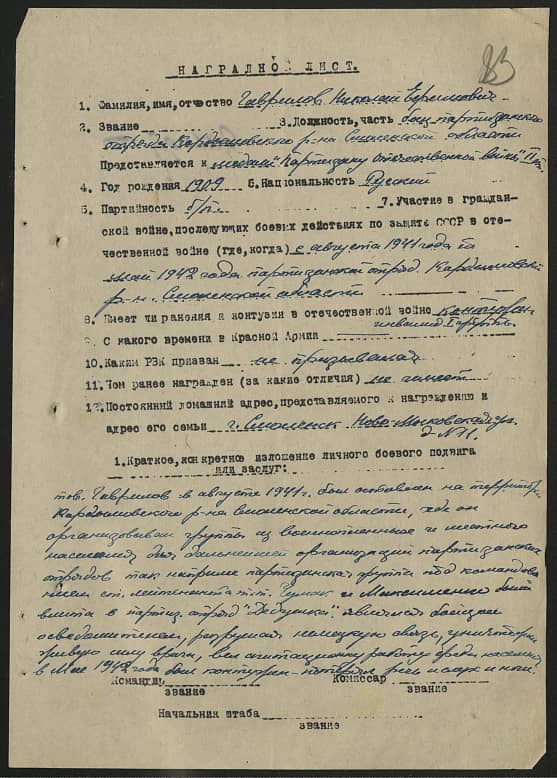 83
НАГРАДНОЙ ЛИСТ.
1. Фамилия, имя, отчество Гаврилов Николай Ефимович
2. Звание 3. Должность, часть боец партизанского
отряда Кардымовского р-на Смоленской области
Представляется к медали "Партизану отечественной войны" II ст.
4. Год рождения 1909 5. Национальность Русский
6. Партийность б/п. 7. Участие в граждан-
ской войне, последующих боевых действиях по защите СССР в оте-
чественной войне (где, когда) с августа 1941 года по
май 1942 года партизанский отряд Кардымовск
р-н. Смоленской области
8. Имеет чи ранения и контузии в отечественной войне контужен
инвалид группы.
9. С какого времени в Красной Армии
10. Каким РВК призван не призывался
11. Чем ранее награжден (за какие отличия) не имеет
12. Постоянний домашний адрес, представляемого к награждению и
адрес его семьи г. Смоленск Ново-Московская ул.
д N 11.
1. Краткое, конкретное изложение личного боевого подвига
или заслуг:
тов. Гаврилов в августе 1941 г. был оставлен на территор.
Кардымовского р-на Смоленской области, где он
организовывал группы из военнопленных и местного
населения для дальнейшей организации партизанских
отрядов так например партизанская группа под командова
нием ст. лейтенанта т.т. и был
влита в партиз. отряд "Дедушка". являлся бойцом
осведомителем, разрушал немецкую связь, уничтожал
живую силу врага, вел агитационную работу среди населения
в Мае 1942 год был контужен - потерял речь и слух и ноги.
Командир Комиссар
звание звание
Начальник штаба
звание